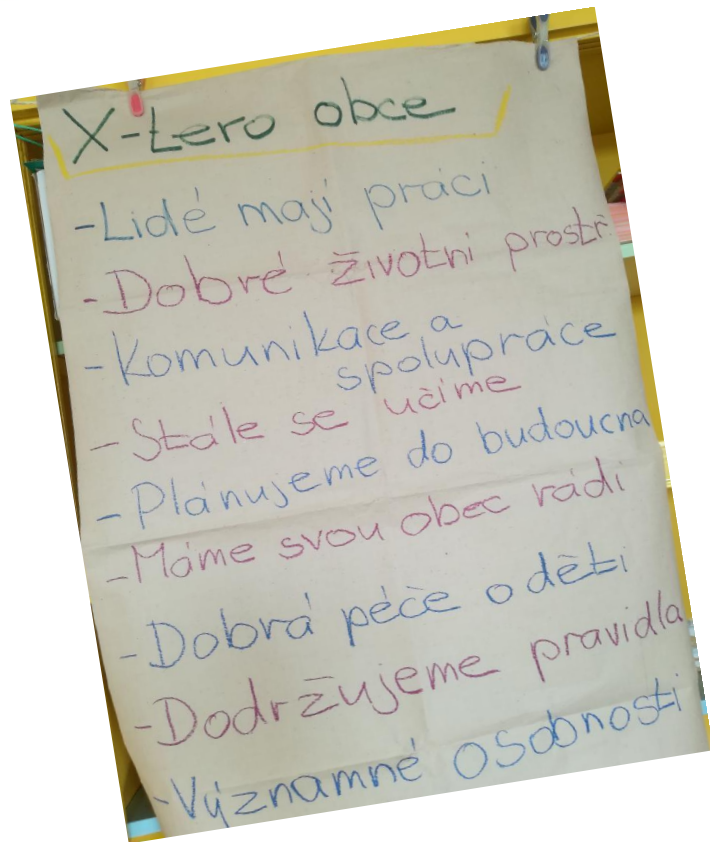 X-tero obce
-Lidé mají práci
-Dobré životni prostř
-Komunikace a
spolupráce
-Stále se učíme
-Plánujeme do budoucna
-Máme svou obec rádi
-Dobrá péče o děti
-Dodržujeme pravidla
-Významné osobnosti